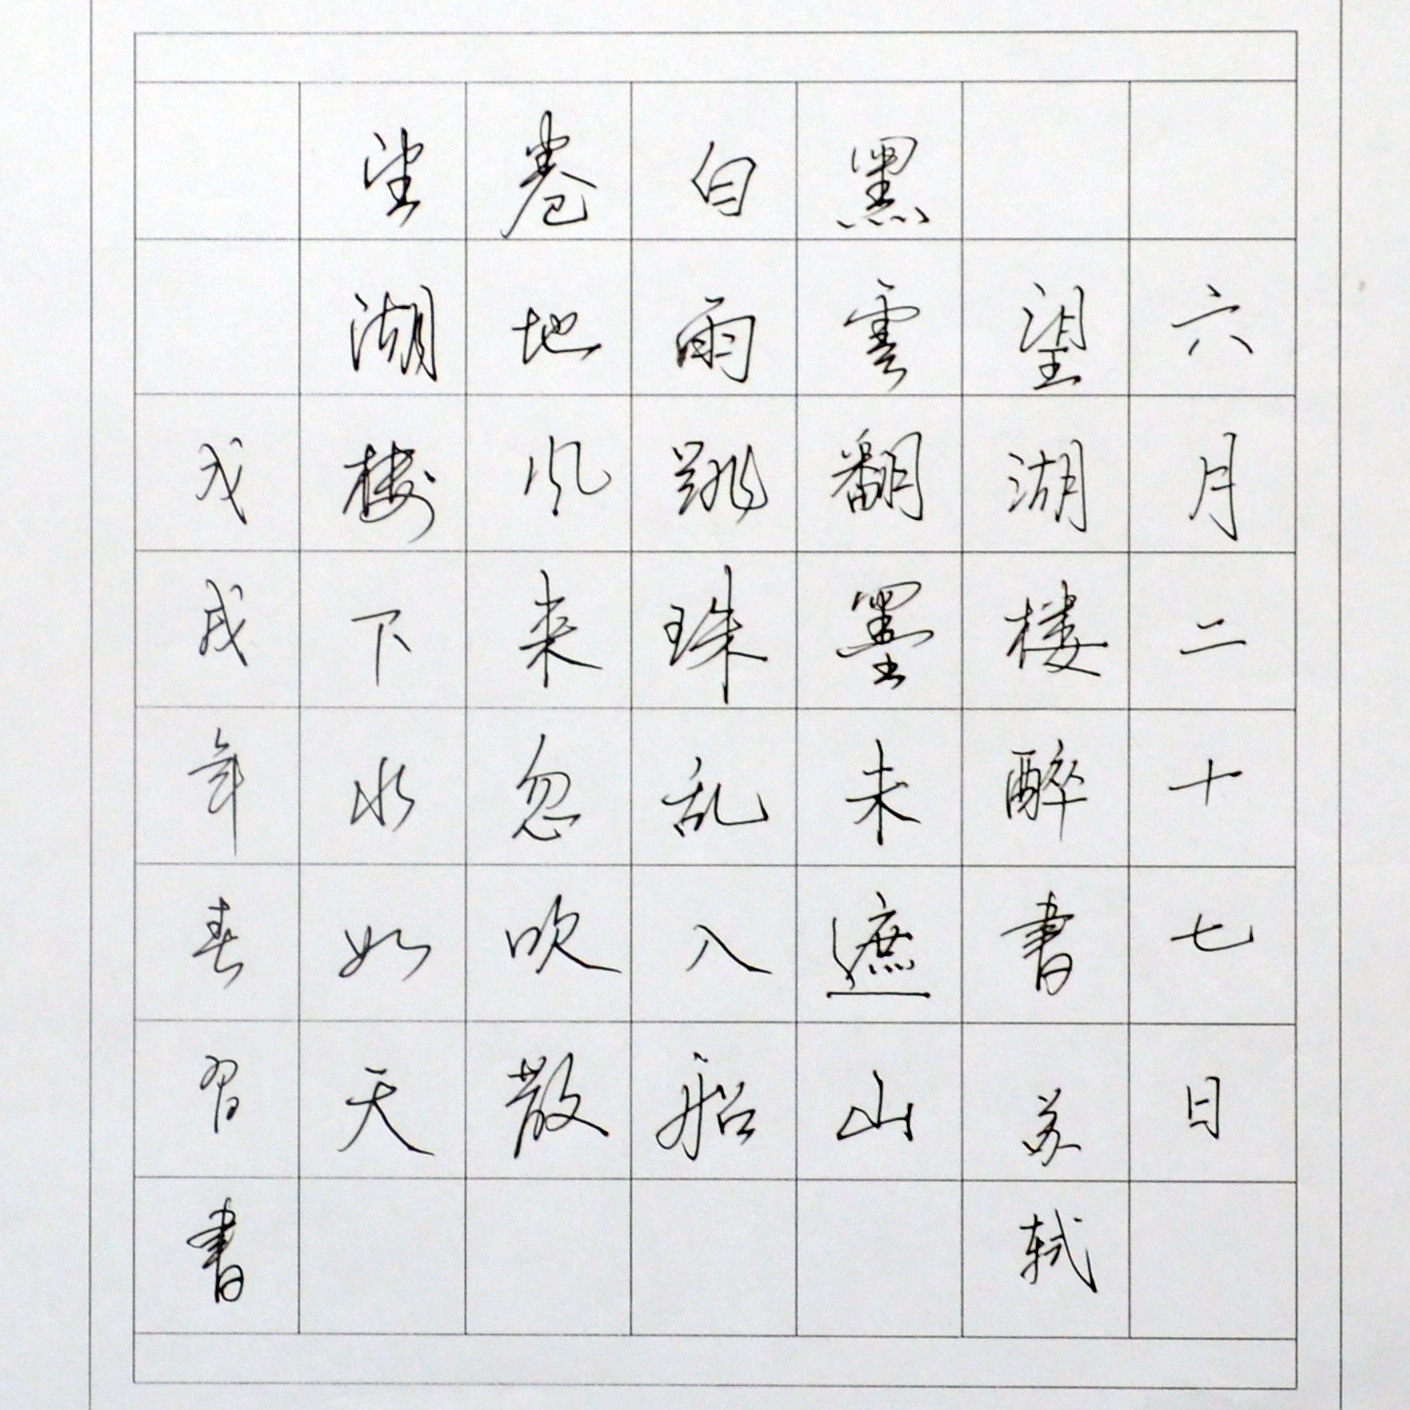 六月二十七日
望湖楼醉書苏轼
黑雲翻墨未遮山
白雨跳珠乱入船
卷地风来忽吹散
望湖楼下水如天
戊戌年春习書